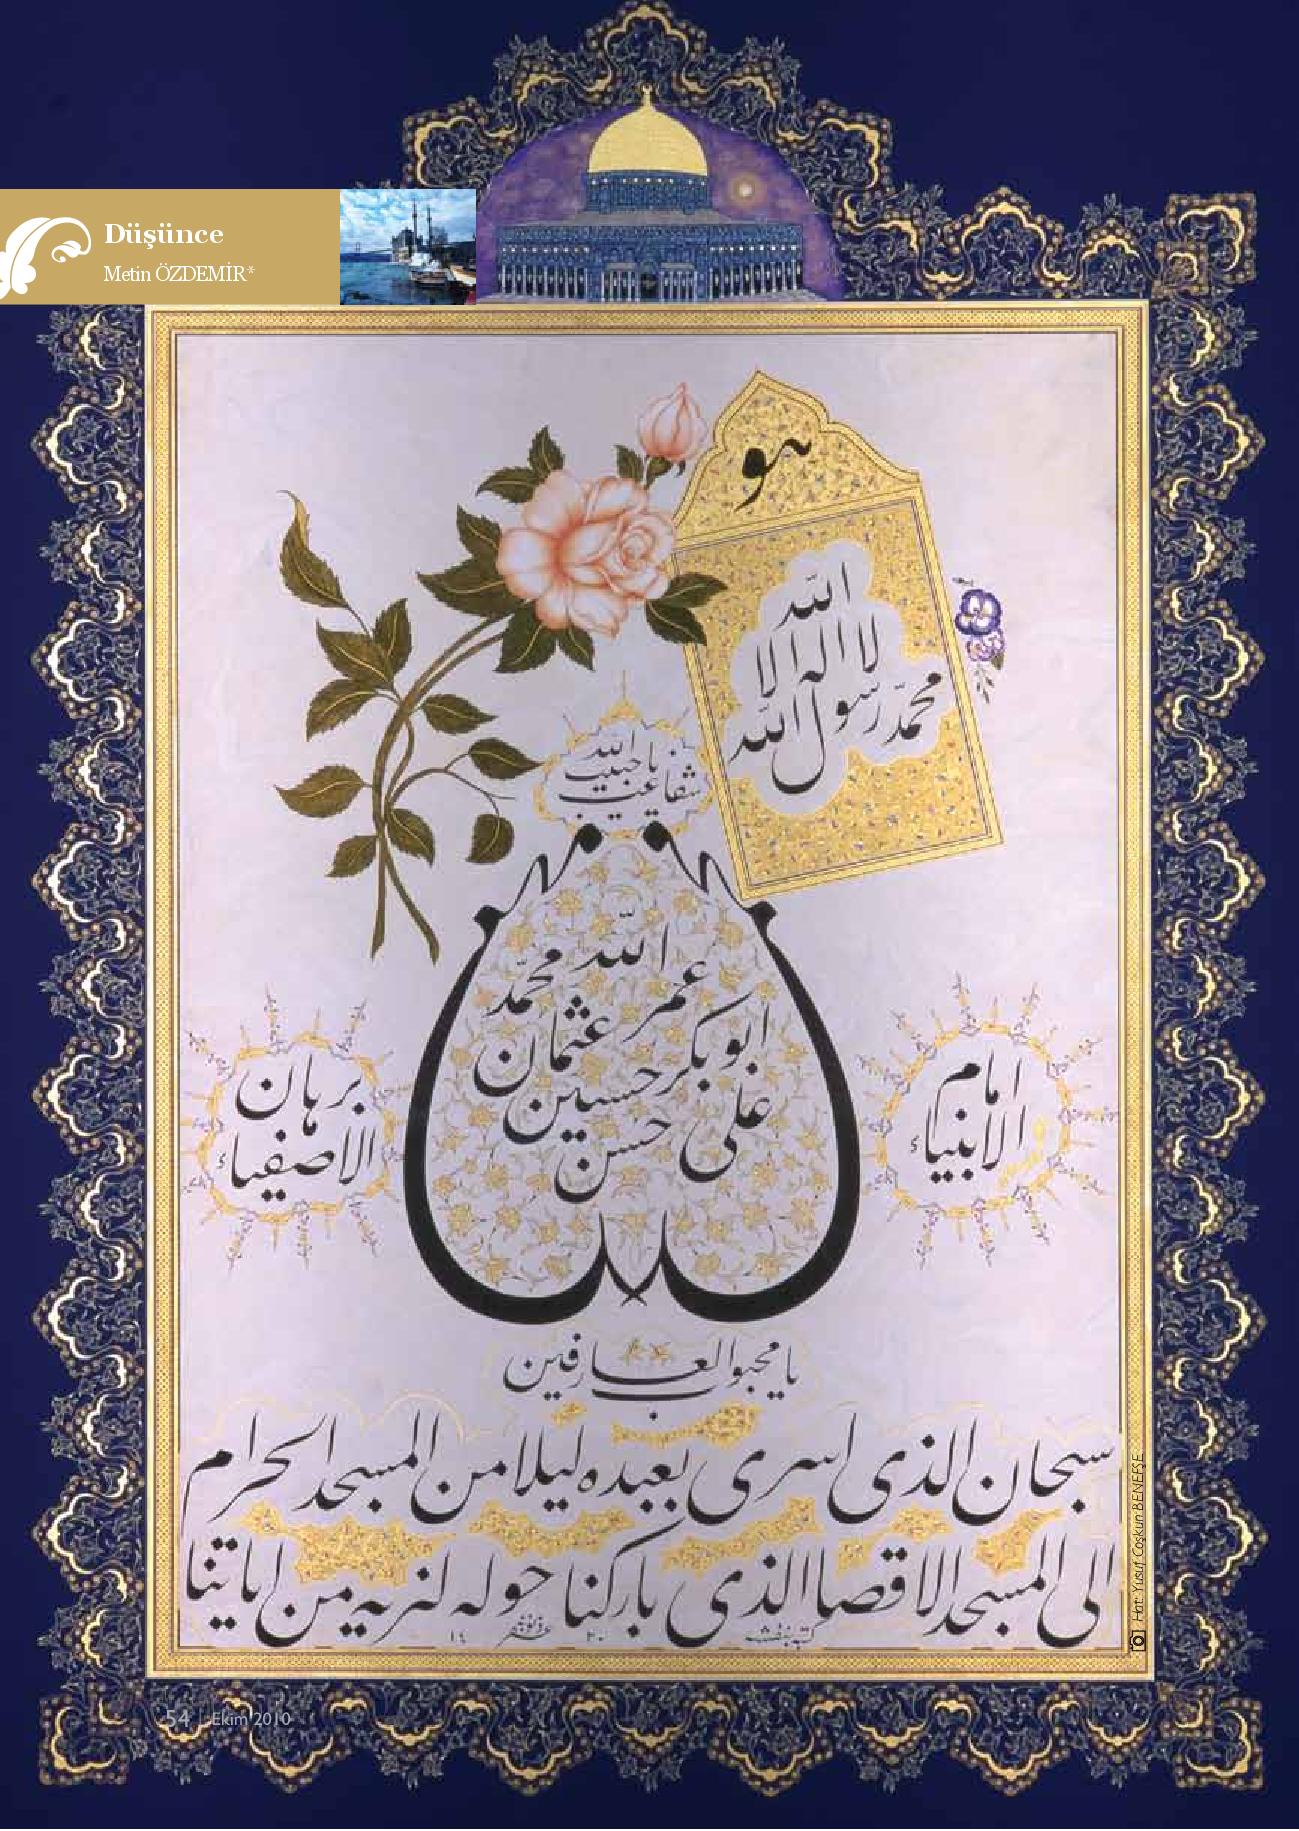 Düşünce
Metin ÖZDEMİR*
هو
الله
لا اله الا
محمد رسول الله
شفاعت يا حبيب الله
الله
محمد
عمر
عثمان
ابو بكر
حسين
على
حسن
امام الانبياء
برهان الاصفياء
يا محبوب العارفين
سبحان الذى اسرى بعبده ليلا من المسجد الحرام
الى المسجد الاقصا الذى باركنا حوله لنريه من اياتنا
Hat: Yusuf Coşkun BENEFŞE
54 | Ekim 2010